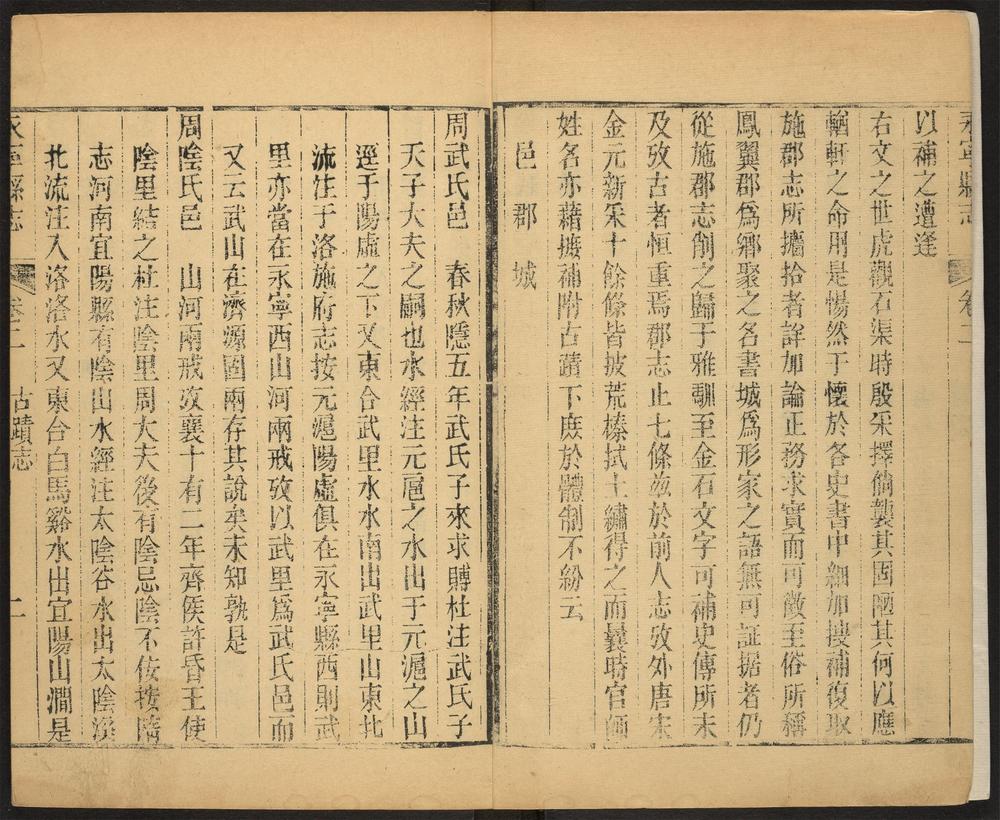 永寧縣志 卷二
以補之遭逢
右文之世虎觀石渠時殷采擇倘襲其固陋其何以應
輶軒之命用是惕然于懷於各史書中細加搜補復取
施郡志所攟拾者詳加論正務求實而可徵至俗所稱
鳳翼郡為鄉聚之名書城為形家之語無可証據者仍
從施郡志削之歸于雅馴至金石文字可補史傳所未
及攷古者恒重焉郡志止七條茲於前人志攷外唐宋
金元新采十餘條皆披荒榛拭土繡得之而曩時官師
姓名亦藉摭補附古蹟下庶於體制不紛云
邑郡城
周武氏邑 春秋隱五年武氏子來求賻杜注武氏子
天子大夫之嗣也水經注元扈之水出于元滬之山
逕于陽虛之下又東合武里水水南出武里山東北
流注于洛施府志按元滬陽虛俱在永寧縣西則武
里亦當在永寧西山河兩戒攷以武里為武氏邑而
又云武山在濟源固兩存其說矣未知孰是
周陰氏邑 山河兩戒攷襄十有二年齊侯許昏王使
陰里結之杜注陰里周大夫後有陰忌陰不佞按隋
志河南宜陽縣有陰山水經注太陰谷水出太陰溪
北流注入洛洛水又東合白馬谿水出宜陽山澗是
永寧縣志 卷二 古蹟志 二